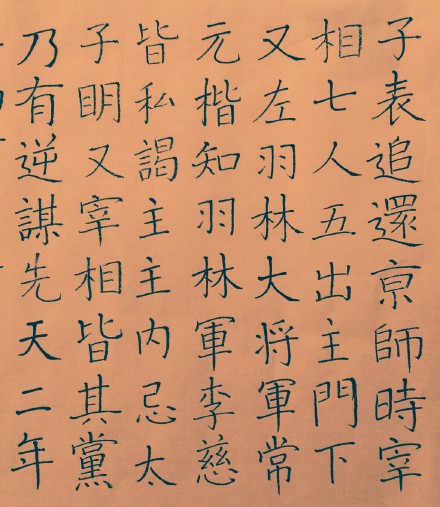 子表追還亰師時宰
相七人五出主門下
又左羽林大将軍常
元楷知羽林軍李慈
皆私謁主主内忌太
子眀又宰相皆其黨
乃有逆謀先天二年